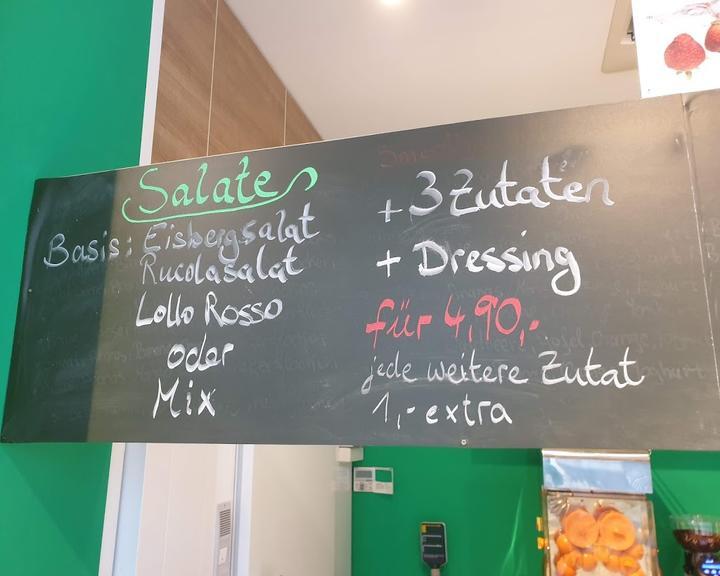 Salate
Basis: Eisbergsalat
Rucolasalat
Lollo Rosso
oder
Mix
+ 3 Zutaten
+ Dressing
für 4,90,-
jede weitere Zutat
1,- extra